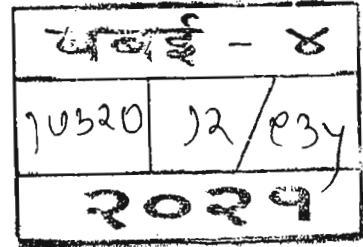 बबई - ४
१७३२० १२/१३५
२०२१